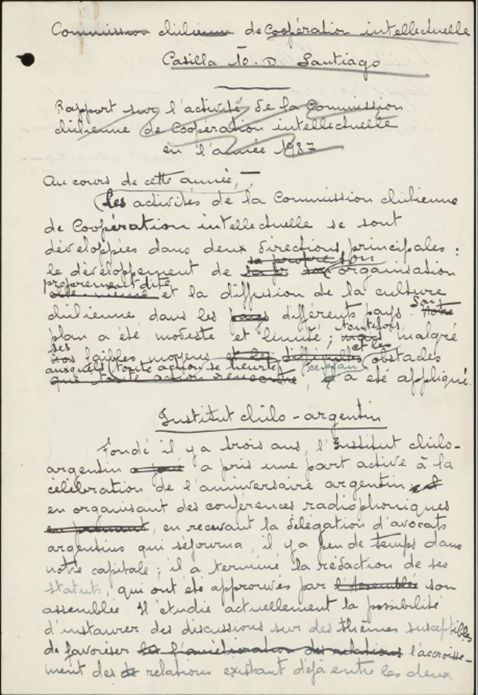 Commission chilienne de Coopération intellectuelle
Casilla 10. D Santiago
Rapport sur l'activité de la Commission
chilienne de Coopération intellectuelle
en l'année 1937
Au cours de cette année,
les activités de la Commission chilienne
de Coopération intellectuelle se sont
développées dans deux directions principales :
sa propre son
le développement de organisation
proprement dite
et la diffusion de la culture
chilienne dans les pays différents pays Son
Notre
plan a été modeste et limité ; mais toutefois, malgré
ses et les
nos faibles moyens et les difficultés obstacles
auxquels toute action se heurte, ce plan
que toute action rencontre, a été appliqué.
Institut chilo-argentin
Fondé il y a trois ans, l'Institut chilo-
argentin a pris une part active à la
célébration de l'anniversaire argentin et
en organisant des conférences radiophoniques
en prenant, en recevant la délégation d'avocats
argentins qui séjourna, il y a peu de temps dans
notre capitale ; il a terminé la rédaction de ses
statuts, qui ont été approuvés par l'Assemblée son
assemblée. Il étudie actuellement la possibilité
d'instaurer des discussions sur des thèmes susceptibles
de favoriser l'amélioration des relations l'accroisse-
ment des relations existant déjà entre les deux